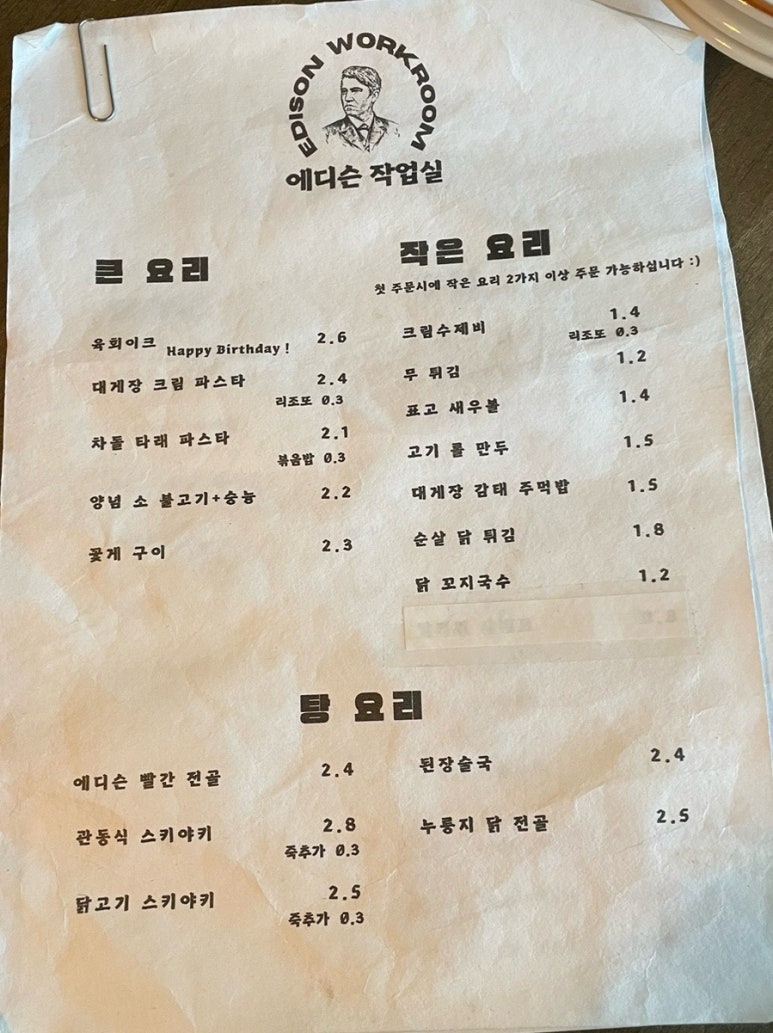 EDISON WORKROOM
에디슨 작업실
큰 요리
육회이크 Happy Birthday! 2.6
대게장 크림 파스타 2.4
리조또 0.3
차돌 타래 파스타 2.1
볶음밥 0.3
양념 소 불고기+숭늉 2.2
꽃게 구이 2.3
작은 요리
첫 주문시에 작은 요리 2가지 이상 주문 가능하십니다 :)
크림수제비 1.4
리조또 0.3
무 튀김 1.2
표고 새우볼 1.4
고기 롤 만두 1.5
대게장 감태 주먹밥 1.5
순살 닭 튀김 1.8
닭 꼬지국수 1.2
탕 요리
에디슨 빨간 전골 2.4
관동식 스키야키 2.8
죽추가 0.3
닭고기 스키야키 2.5
죽추가 0.3
된장술국 2.4
누룽지 닭 전골 2.5